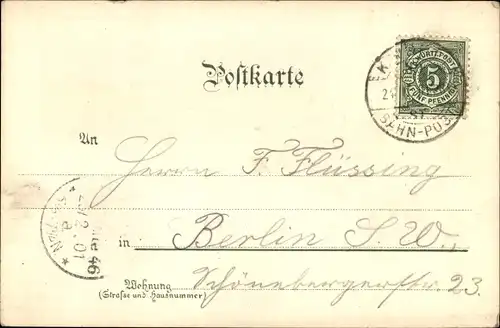 Postkarte
K. WÜRTT. POST
5
FÜNF PFENNIG
BAHN-POST
An
Herrn F. Flüssing
in Berlin S. W.,
Wohnung Schönebergerstr 23.
(Straße und Hausnummer)
46
2 01